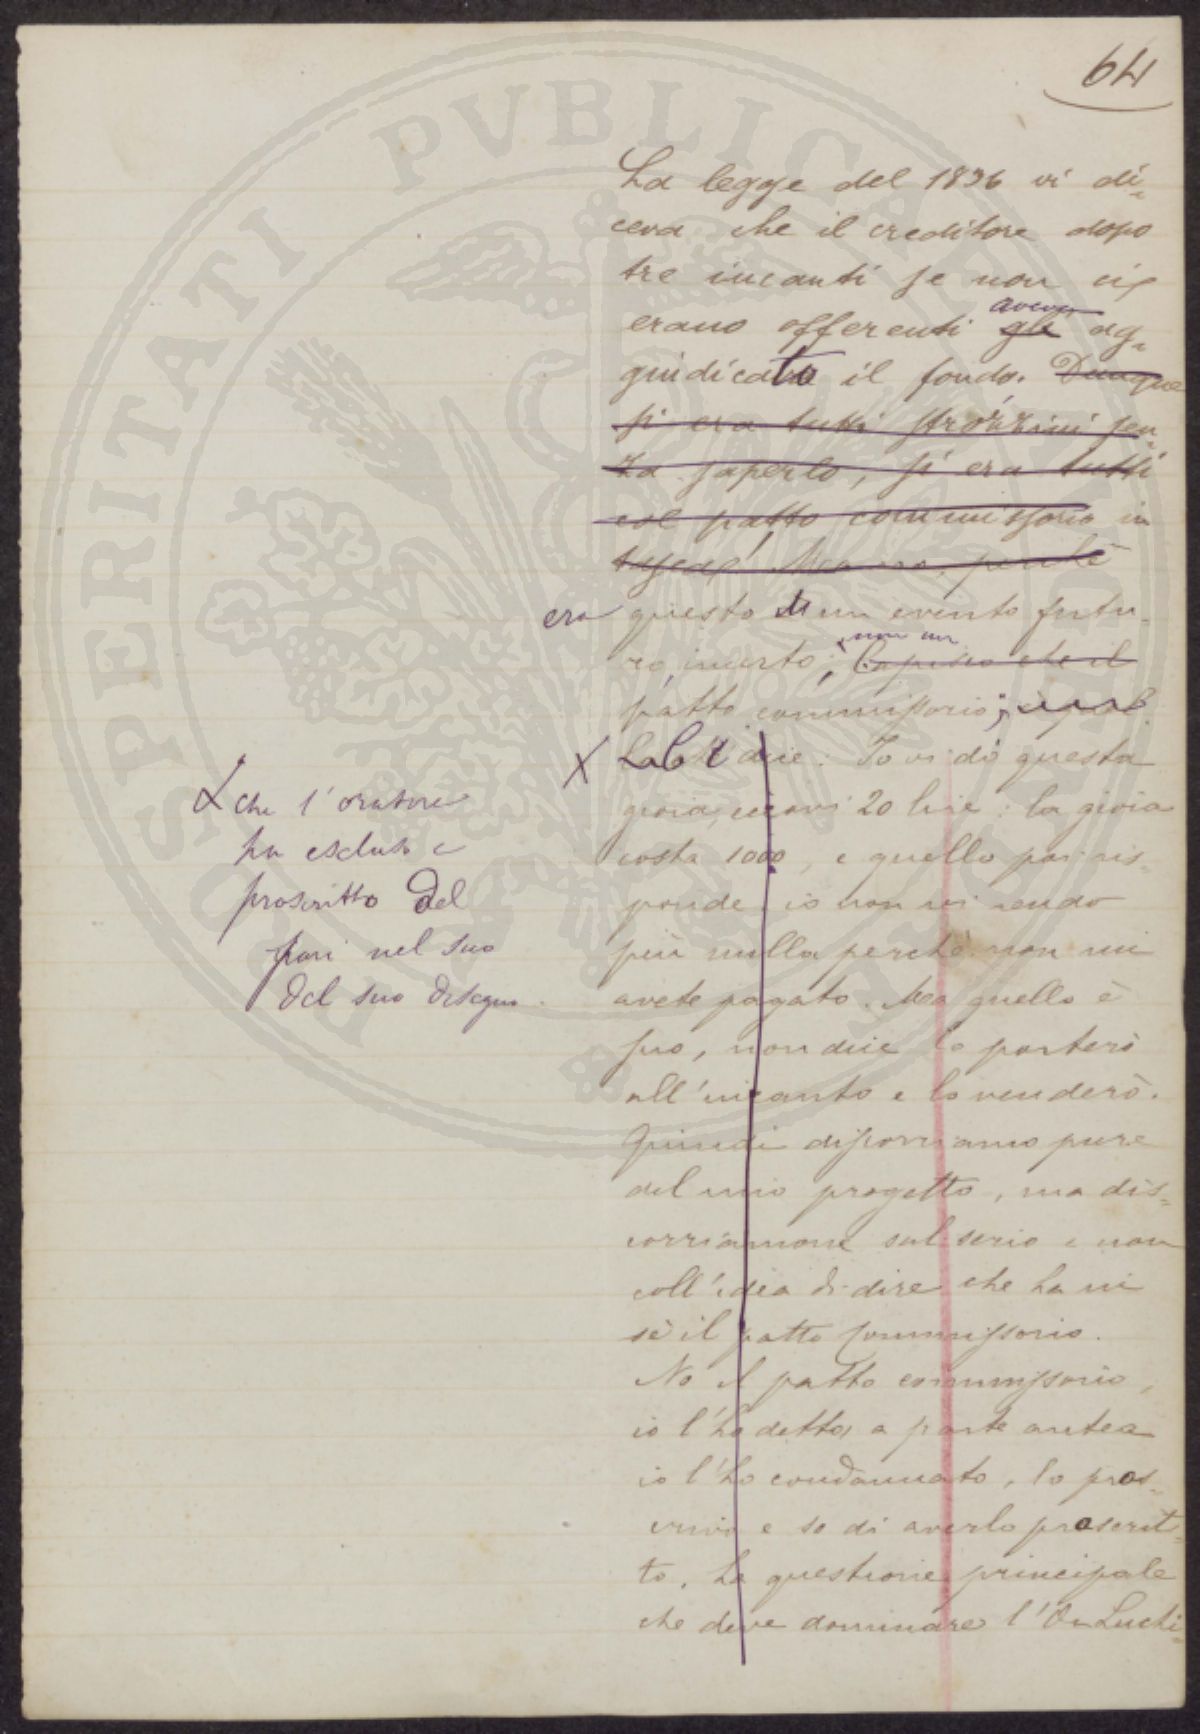 64
La legge del 1836 vi di-
ceva che il creditore dopo
tre incanti se non vi
erano offerenti gli aveva ag-
giudicato il fondo. Dunque
si era tutti strozzini sen-
za saperlo, si era tutti
col patto commissorio in
Ma no, perchè
era questo un evento futu-
ro, incerto; non un Capisco che il
patto commissorio;
X La dice: Io vi do questa
gioia, 20 lire: la gioia
costa 1000, e quello poi ris-
ponde io non vi rendo
più nulla perchè non mi
avete pagato. Ma quello è
suo, non dice lo porterò
all'incanto e lo venderò.
Quindi discorriamo pure
del mio progetto, ma dis-
corriamone sul serio e non
coll'idea di dire che ha in
sè il patto commissorio.
No il patto commissorio,
io l'ho detto a parte antea
io l'ho condannato, lo pros-
crivo e so di averlo proscrit-
to. La questione principale
che deve dominare l'On. Luchi-
X che l'oratore
ha escluso e
proscritto del
pari nel suo
del suo disegno.
SPERITATI PVBLICAE